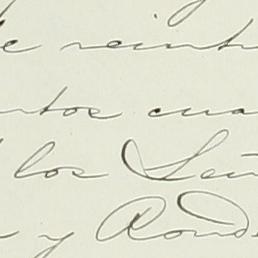 e reint
ntos cua
los Señ
y Rond